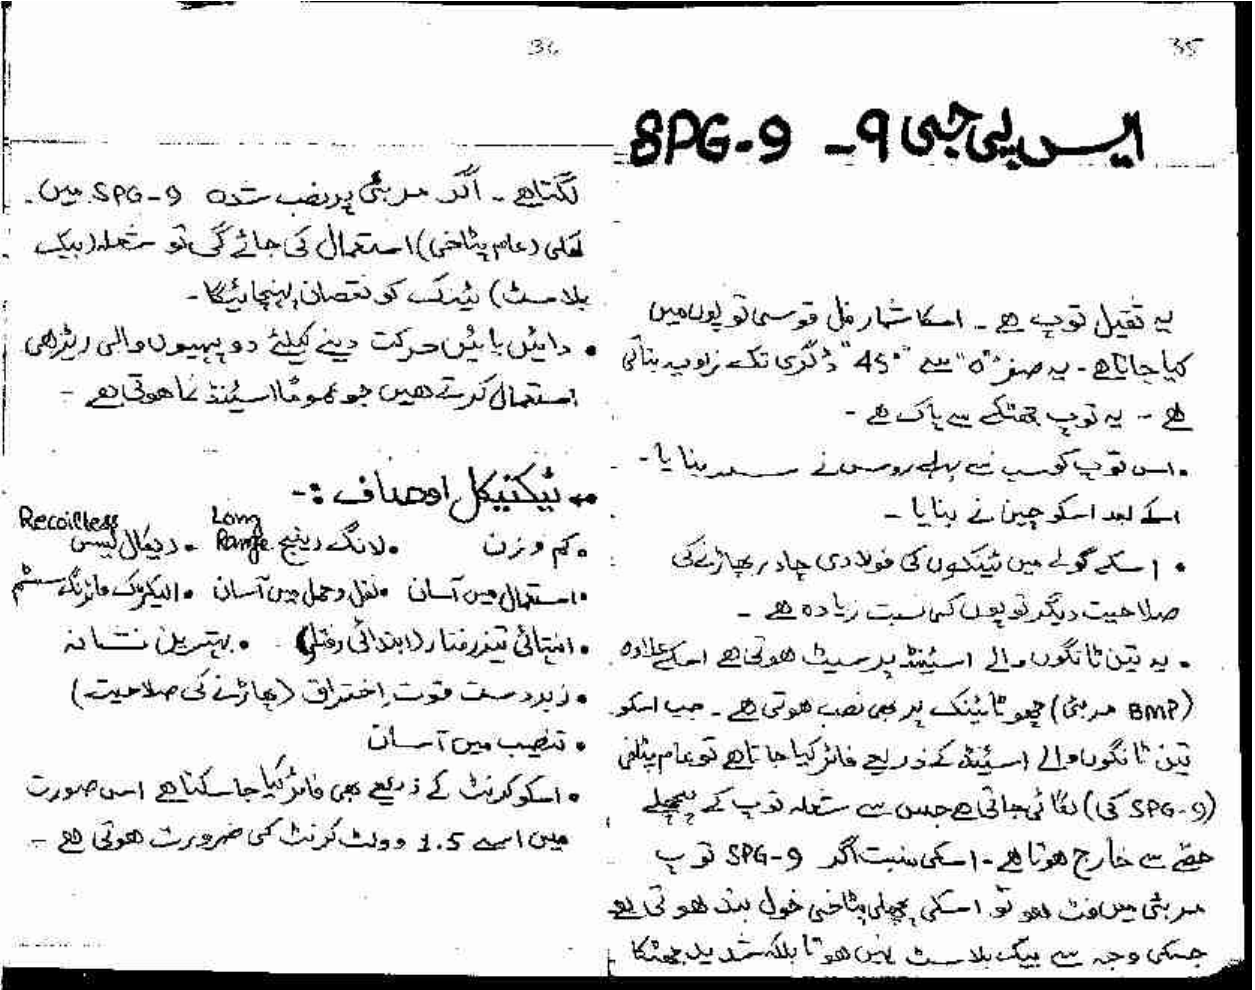 35
ایس پی جی ۹ - SPG-9
یہ ثقیل توپ ہے ۔ اسکا شمار قوسی توپوں میں
کیا جاتا ہے ۔ یہ صفر "0" سے "45" ڈگری تک زاویہ بناتی
ہے ۔ یہ توپ جھٹکے سے پاک ہے ۔
• اس توپ کو سب سے پہلے روس نے بنایا ۔
اسکے بعد اسکو چین نے بنایا ۔
• اسکے گولے میں ٹینکوں کی فولادی چادر پھاڑنے کی
صلاحیت دیگر توپوں کی نسبت زیادہ ہے ۔
• یہ تین ٹانگوں والے اسٹینڈ پر سیٹ ھوتی ھے اسکے علاوہ
(BMP مدبئی) چھوٹا ٹینک پر بھی نصب ھوتی ھے ۔ جب اسکو
تین ٹانگوں والے اسٹینڈ کے ذریعے فائر کیا جاتا ھے تو عام پٹاخی
(SPG-9 کی) لگائی جاتی ھے جس سے شعلہ توپ کے پچھلے
حصّے سے خارج ھوتا ھے ۔ اسکی نسبت اگر SPG-9 توپ
مدبئی میں فٹ ھو تو اسکی پچھلی پٹاخی خول بند ھوتی ھے
جسکی وجہ سے بیک بلاسٹ نہیں ھوتا بلکہ شدید جھٹکا
36
لگتا ھے ۔ اگر مدبئی پر نصب شدہ SPG-9 میں
(عام پٹاخی) استعمال کی جائے گی تو شعلہ (بیک
بلاسٹ) ٹینک کو نقصان پہنچائیگا ۔
• دائیں بائیں حرکت دینے کیلئے دو پہیوں والی ریڑھی
استعمال کرتے ھیں جو عموماً اسٹینڈ نما ھوتی ھے ۔
•• ٹیکنیکل اوصاف :-
• کم وزن • لانگ رینج Long Range • ریکال لیس Recoilless
• استعمال میں آسان • نقل و حمل میں آسان • الیکٹرک فائرنگ سسٹم
• انتہائی تیز رفتار (ابتدائی رفتار) • بہترین نشانہ
• زبردست قوت اختراق (پھاڑنے کی صلاحیت)
• تنصیب میں آسان
• اسکو کرنٹ کے ذریعے بھی فائر کیا جا سکتا ھے اس صورت
میں اسے 1.5 وولٹ کرنٹ کی ضرورت ھوتی ھے ۔